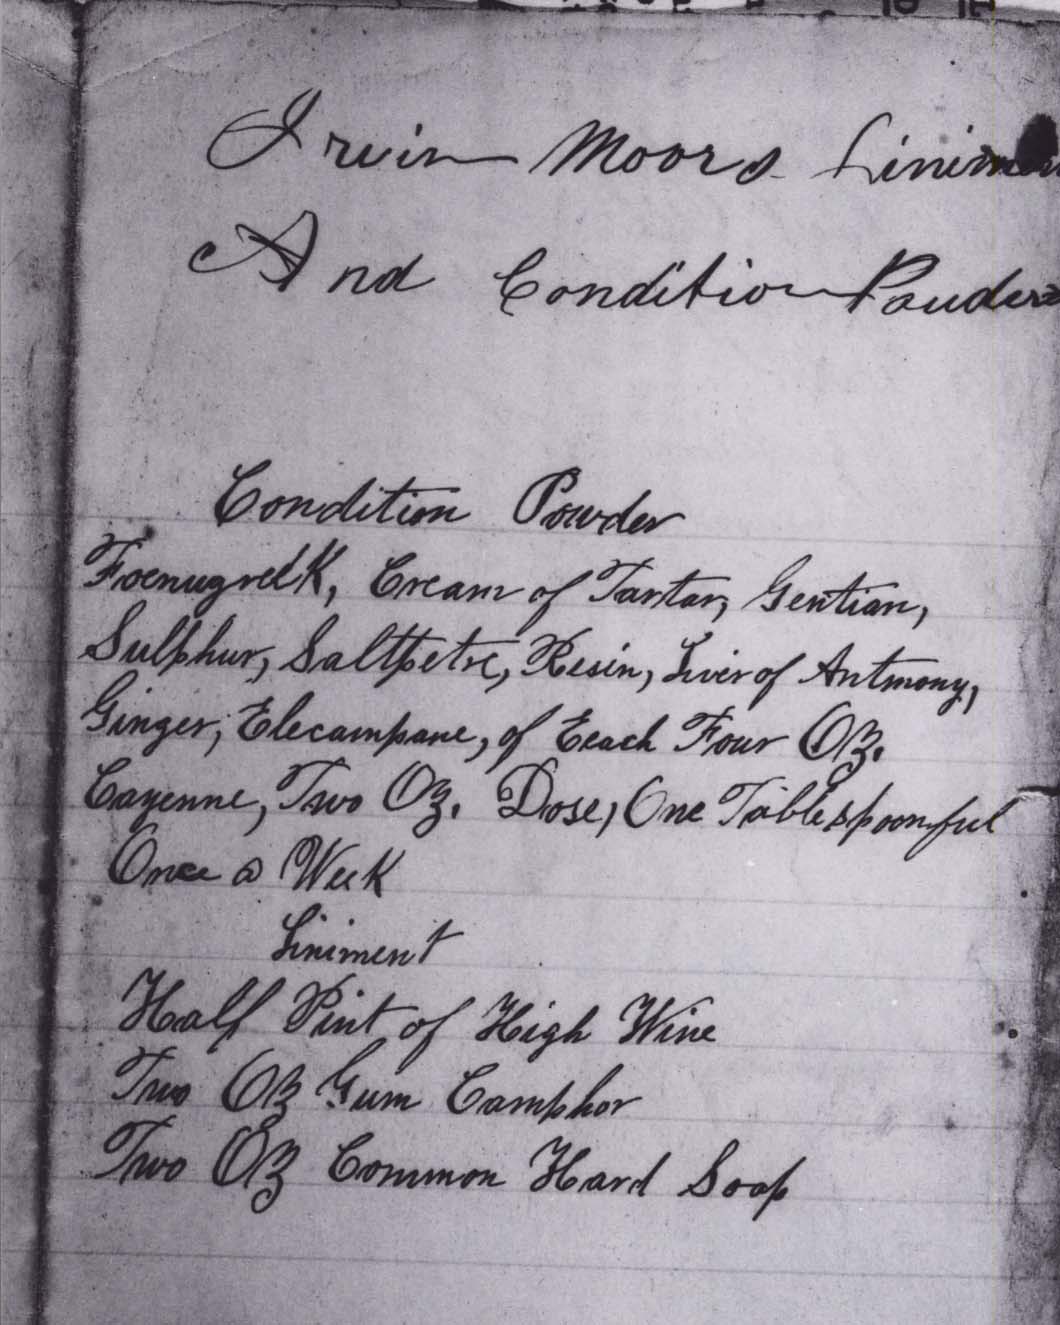 Irvin Moors Linimen
And Condition Pouders
Condition Powder
Foenugrelk, Cream of Tartar, Gentian,
Sulphur, Saltpetre, Resin, Liver of Antmony,
Ginger, Elecampane, of Eeach Four Oz.
Cayenne, Two Oz. Dose, One Tablespoonful
Once a Week
Liniment
Half Pint of High Wine
Two Oz Gum Camphor
Two Oz Common Hard Soap